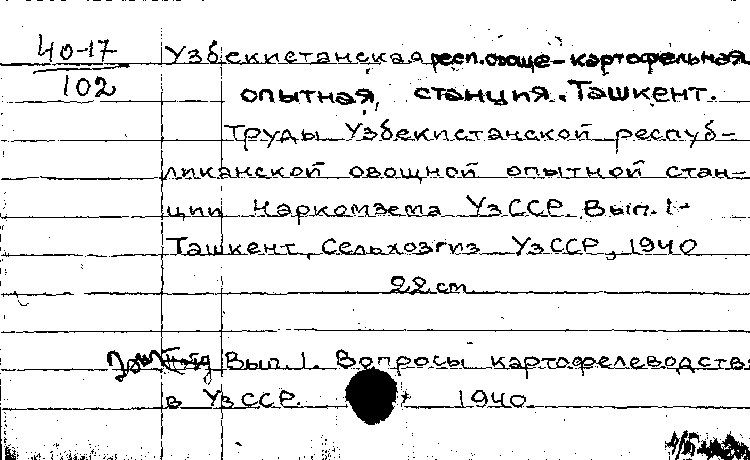 40-17
102
Узбекистанская респ. овоще-картофельная
опытная станция. Ташкент.
Труды Узбекистанской респуб-
ликанской овощной опытной стан-
ции Наркомзема УзССР. Вып. 1-
Ташкент, Сельхозгиз УзССР, 1940
22 cm
Вып. 1. Вопросы картофелеводств
в УзССР. 1940